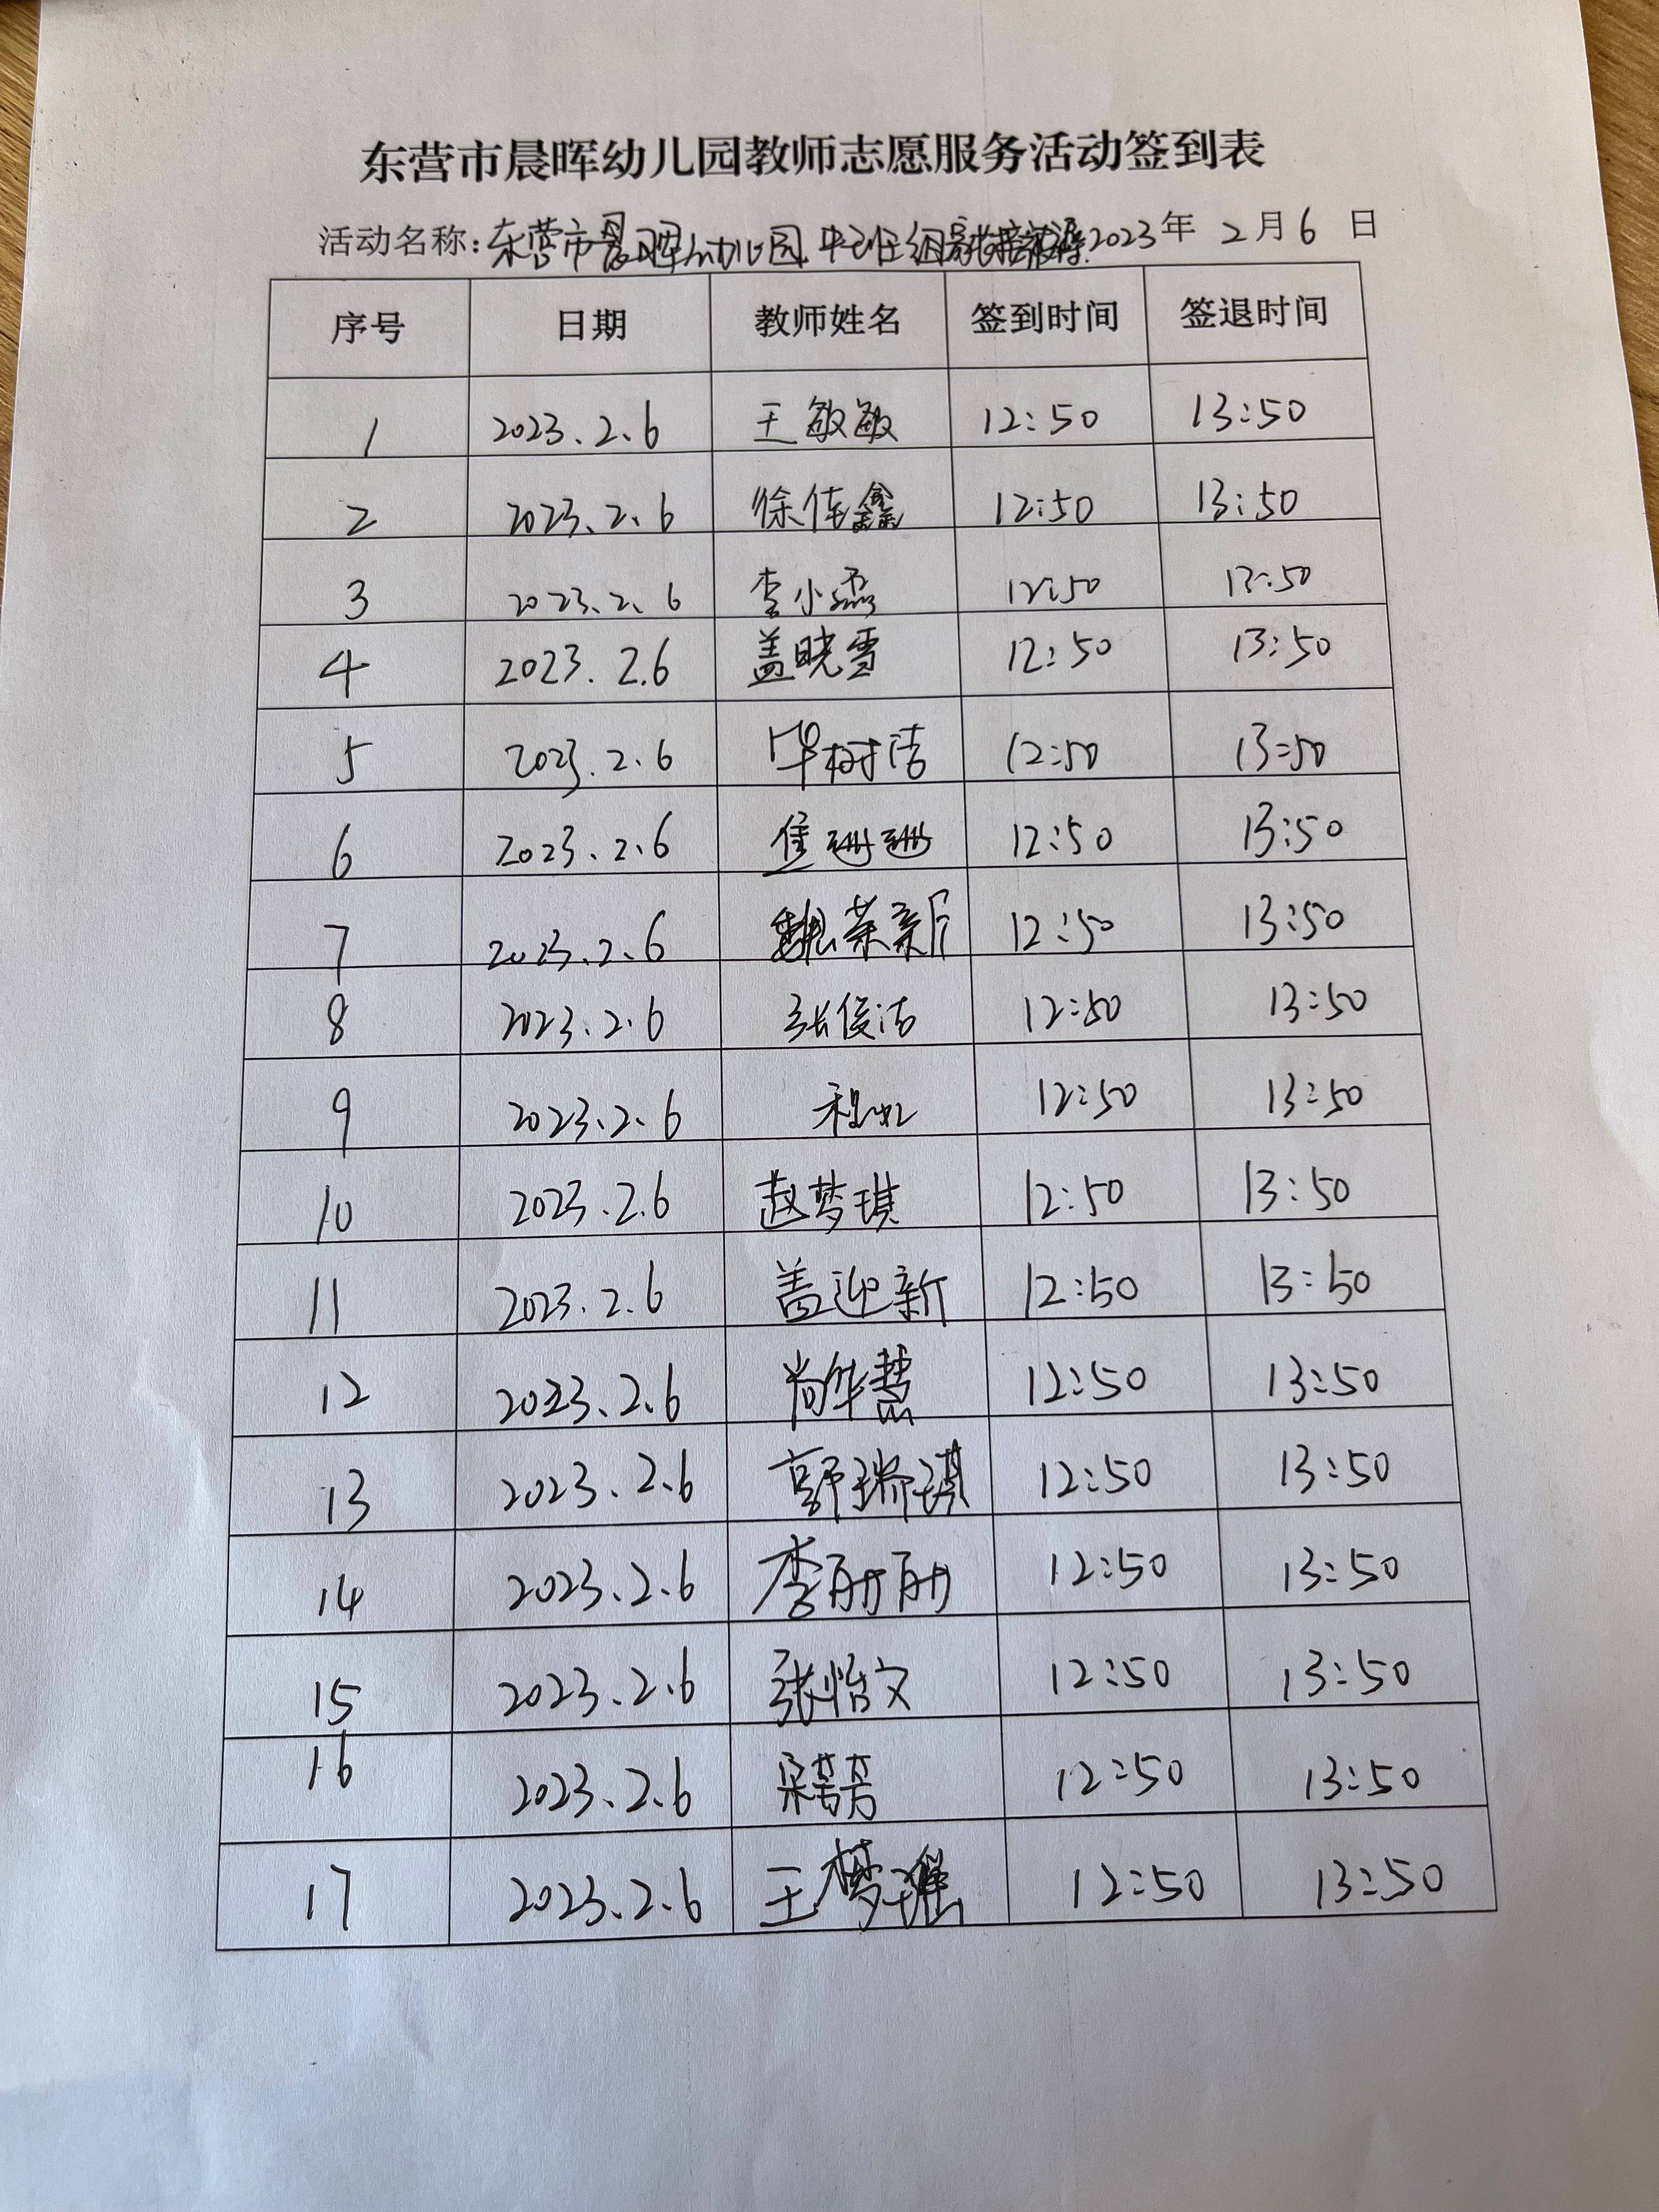 东营市晨晖幼儿园教师志愿服务活动签到表
活动名称:东营市晨晖幼儿园中班组 2023年 2月6日
序号 日期 教师姓名 签到时间 签退时间
1 2023.2.6 王敏敏 12:50 13:50
2 2023.2.6 徐佳鑫 12:50 13:50
3 2023.2.6 李小磊 12:50 13:50
4 2023.2.6 盖晓雪 12:50 13:50
5 2023.2.6 毕树洁 12:50 13:50
6 2023.2.6 侯珊珊 12:50 13:50
7 2023.2.6 魏荣新 12:50 13:50
8 2023.2.6 张俊洁 12:50 13:50
9 2023.2.6 12:50 13:50
10 2023.2.6 赵梦琪 12:50 13:50
11 2023.2.6 盖迎新 12:50 13:50
12 2023.2.6 尚华慧 12:50 13:50
13 2023.2.6 郭瑞琪 12:50 13:50
14 2023.2.6 李丽丽 12:50 13:50
15 2023.2.6 张怡文 12:50 13:50
16 2023.2.6 12:50 13:50
17 2023.2.6 王梦瑶 12:50 13:50